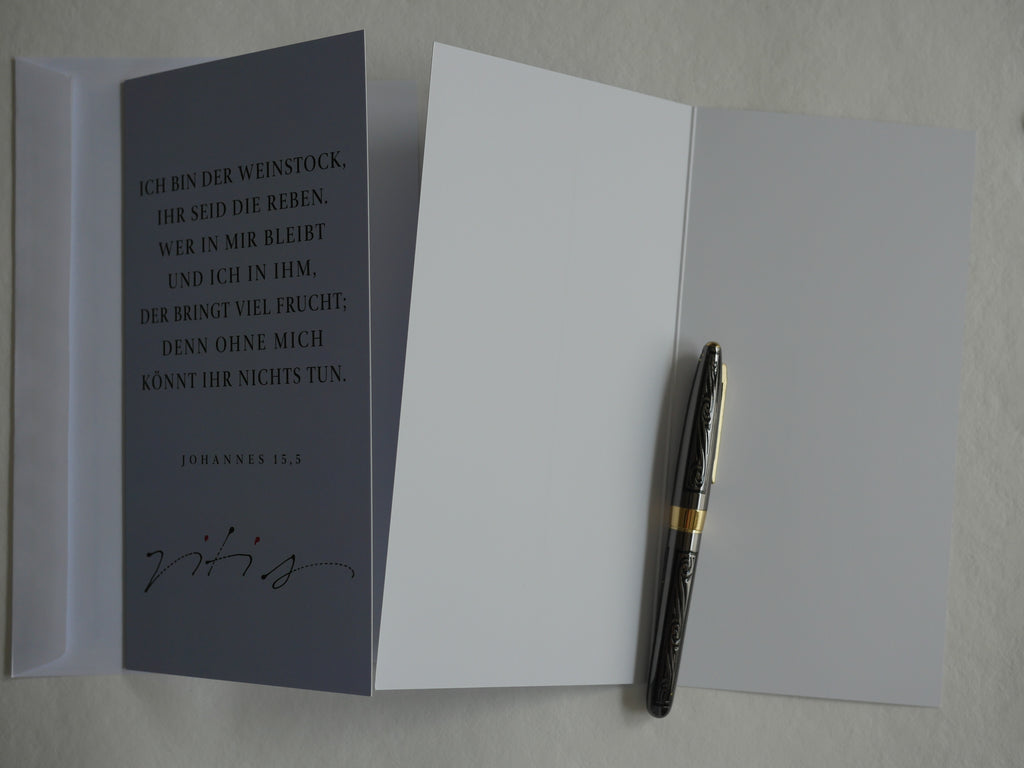 ICH BIN DER WEINSTOCK,
IHR SEID DIE REBEN.
WER IN MIR BLEIBT
UND ICH IN IHM,
DER BRINGT VIEL FRUCHT;
DENN OHNE MICH
KÖNNT IHR NICHTS TUN.
JOHANNES 15,5
vitis